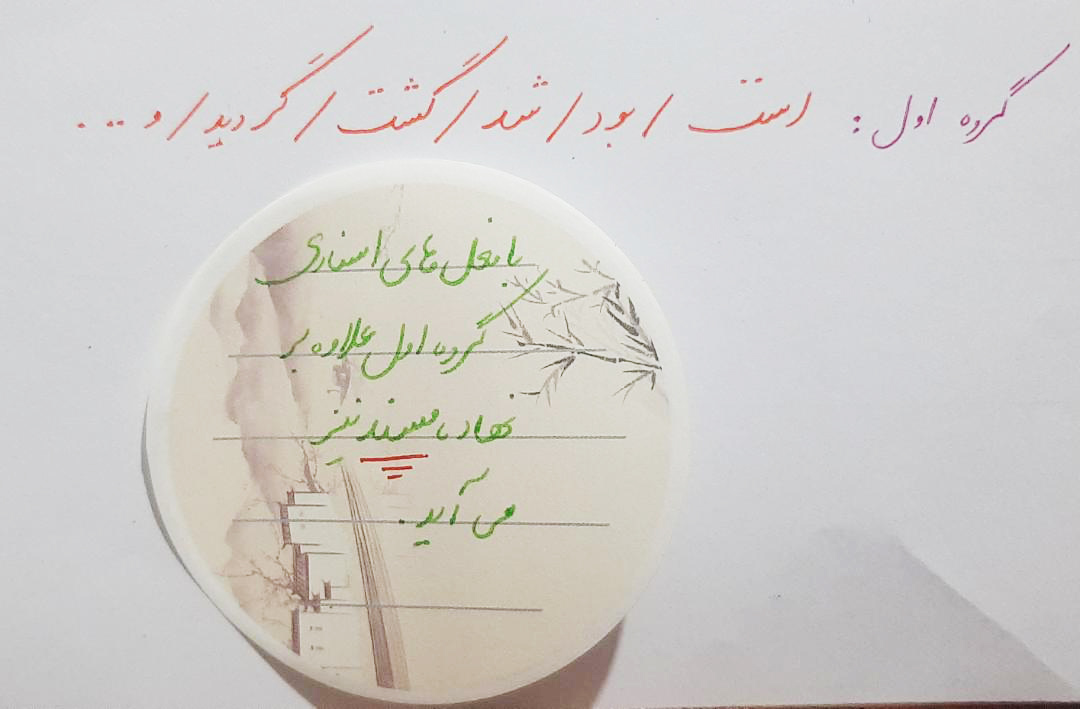 گروه اول: است / بود / شد / گشت / گردید / و ...
با فعل های اسنادی
گروه اول علاوه بر
نهاد، مسند نیز
می آید.